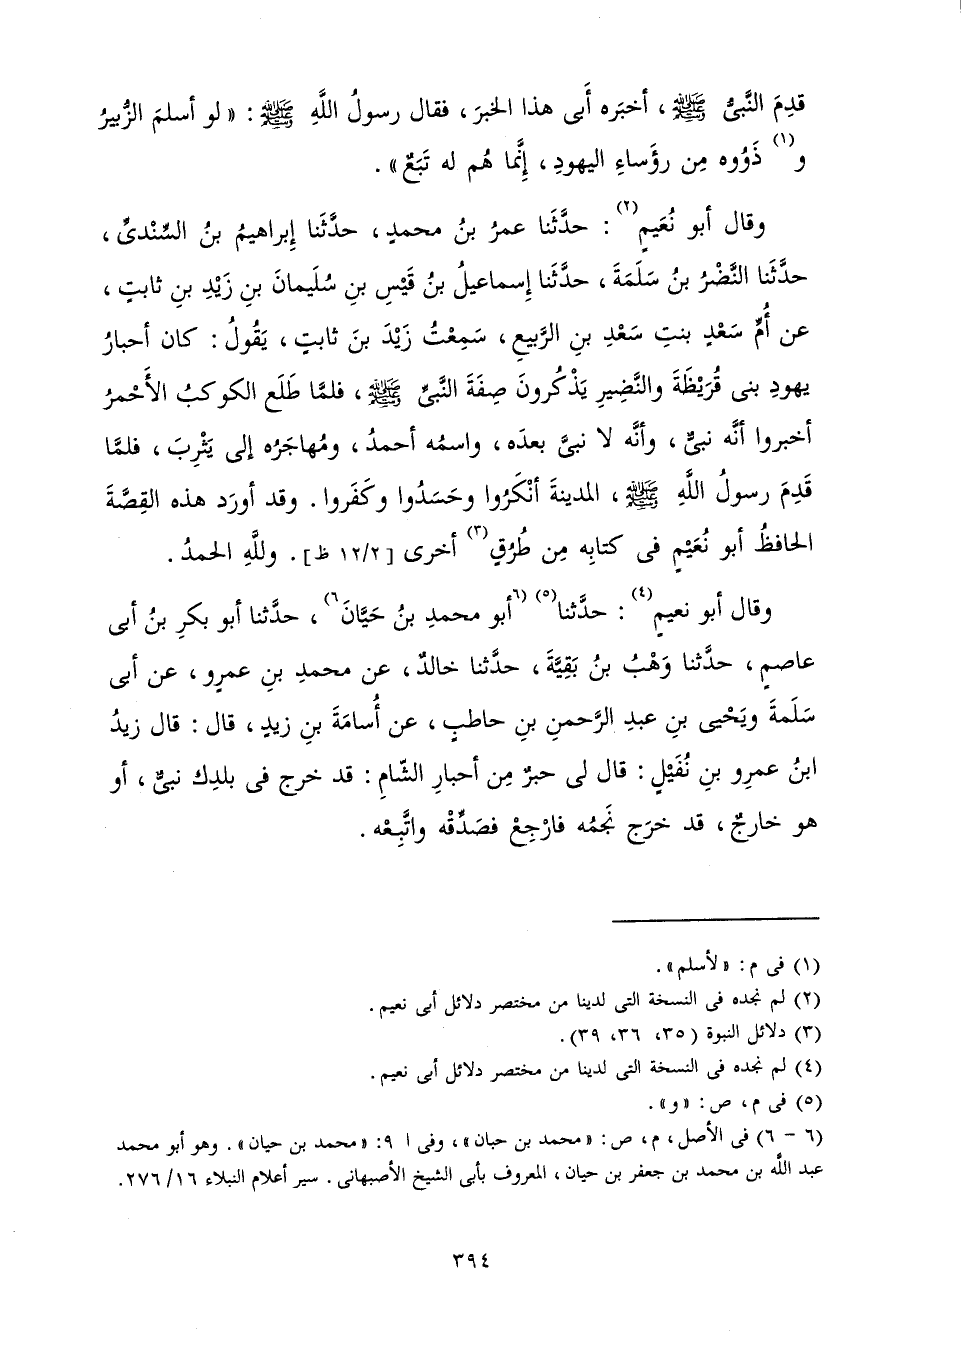 قدِمَ النَّبىُّ ﷺ ، أخبَره أَبى هذا الخبرَ ، فقال رسولُ اللَّهِ ﷺ : « لو أسلمَ الزُّبيرُ
و(١) ذَوُوه مِن رؤَساءِ اليهودِ ، إِنَّما هُم له تَبَعٌ » .
وقال أبو نُعَيمٍ(٢) : حدَّثَنا عمرُ بنُ محمدٍ ، حدَّثَنا إِبراهيمُ بنُ السِّنْدىِّ ،
حدَّثَنا النَّضْرُ بنُ سَلَمَةَ ، حدَّثَنا إِسماعيلُ بنُ قَيْسِ بنِ سُلَيمانَ بنِ زَيْدِ بنِ ثابتٍ ،
عن أُمِّ سَعْدٍ بنتِ سَعْدِ بنِ الرَّبيعِ ، سَمِعْتُ زَيْدَ بنَ ثابتٍ ، يَقُولُ : كان أحبارُ
يهودِ بنى قُرَيْظَةَ والنَّضِيرِ يَذْكُرونَ صِفَةَ النَّبىِّ ﷺ ، فلمَّا طَلَع الكوكبُ الأَحْمرُ
أخبروا أنَّه نبىٌّ ، وأنَّه لا نبىَّ بعدَه ، واسمُه أحمدُ ، ومُهاجَرُه إلى يَثْرِبَ ، فلمَّا
قَدِمَ رسولُ اللَّهِ ﷺ ، المدينةَ أنْكَرُوا وحَسَدُوا وكَفَروا . وقد أورَد هذه القِصَّةَ
الحافظُ أبو نُعَيْمٍ فى كتابِه مِن طُرُقٍ(٣) أخرى [ ١٢/٢ ظ ] . وللَّهِ الحمدُ .
وقال أبو نعيمٍ(٤) : حدَّثنا(٥) (٦أبو محمدِ بنُ حَيَّانَ٦) ، حدَّثنا أبو بكرِ بنُ أبى
عاصمٍ ، حدَّثنا وَهْبُ بنُ بَقِيَّةَ ، حدَّثنا خالدٌ ، عن محمدِ بنِ عمرٍو ، عن أبى
سَلَمةَ ويَحْيى بنِ عبدِ الرَّحمنِ بنِ حاطبٍ ، عن أُسامَةَ بنِ زيدٍ ، قال : قال زيدُ
ابنُ عمرِو بنِ نُفَيْلٍ : قال لى حبرٌ مِن أحبارِ الشَّامِ : قد خرج فى بلدِك نبىٌّ ، أو
هو خارجٌ ، قد خرَج نَجمُه فارْجِعْ فصَدِّقْه واتَّبِعْه .
(١) فى م : « لأسلم » .
(٢) لم نجده فى النسخة التى لدينا من مختصر دلائل أبى نعيم .
(٣) دلائل النبوة ( ٣٥، ٣٦، ٣٩) .
(٤) لم نجده فى النسخة التى لدينا من مختصر دلائل أبى نعيم .
(٥) فى م ، ص : « و » .
(٦ - ٦) فى الأصل ، م ، ص : « محمد بن حبان » ، وفى ا ٩: « محمد بن حيان » . وهو أبو محمد
عبد اللَّه بن محمد بن جعفر بن حيان ، المعروف بأبى الشيخ الأصبهانى . سير أعلام النبلاء ٢٧٦/١٦ .
٣٩٤